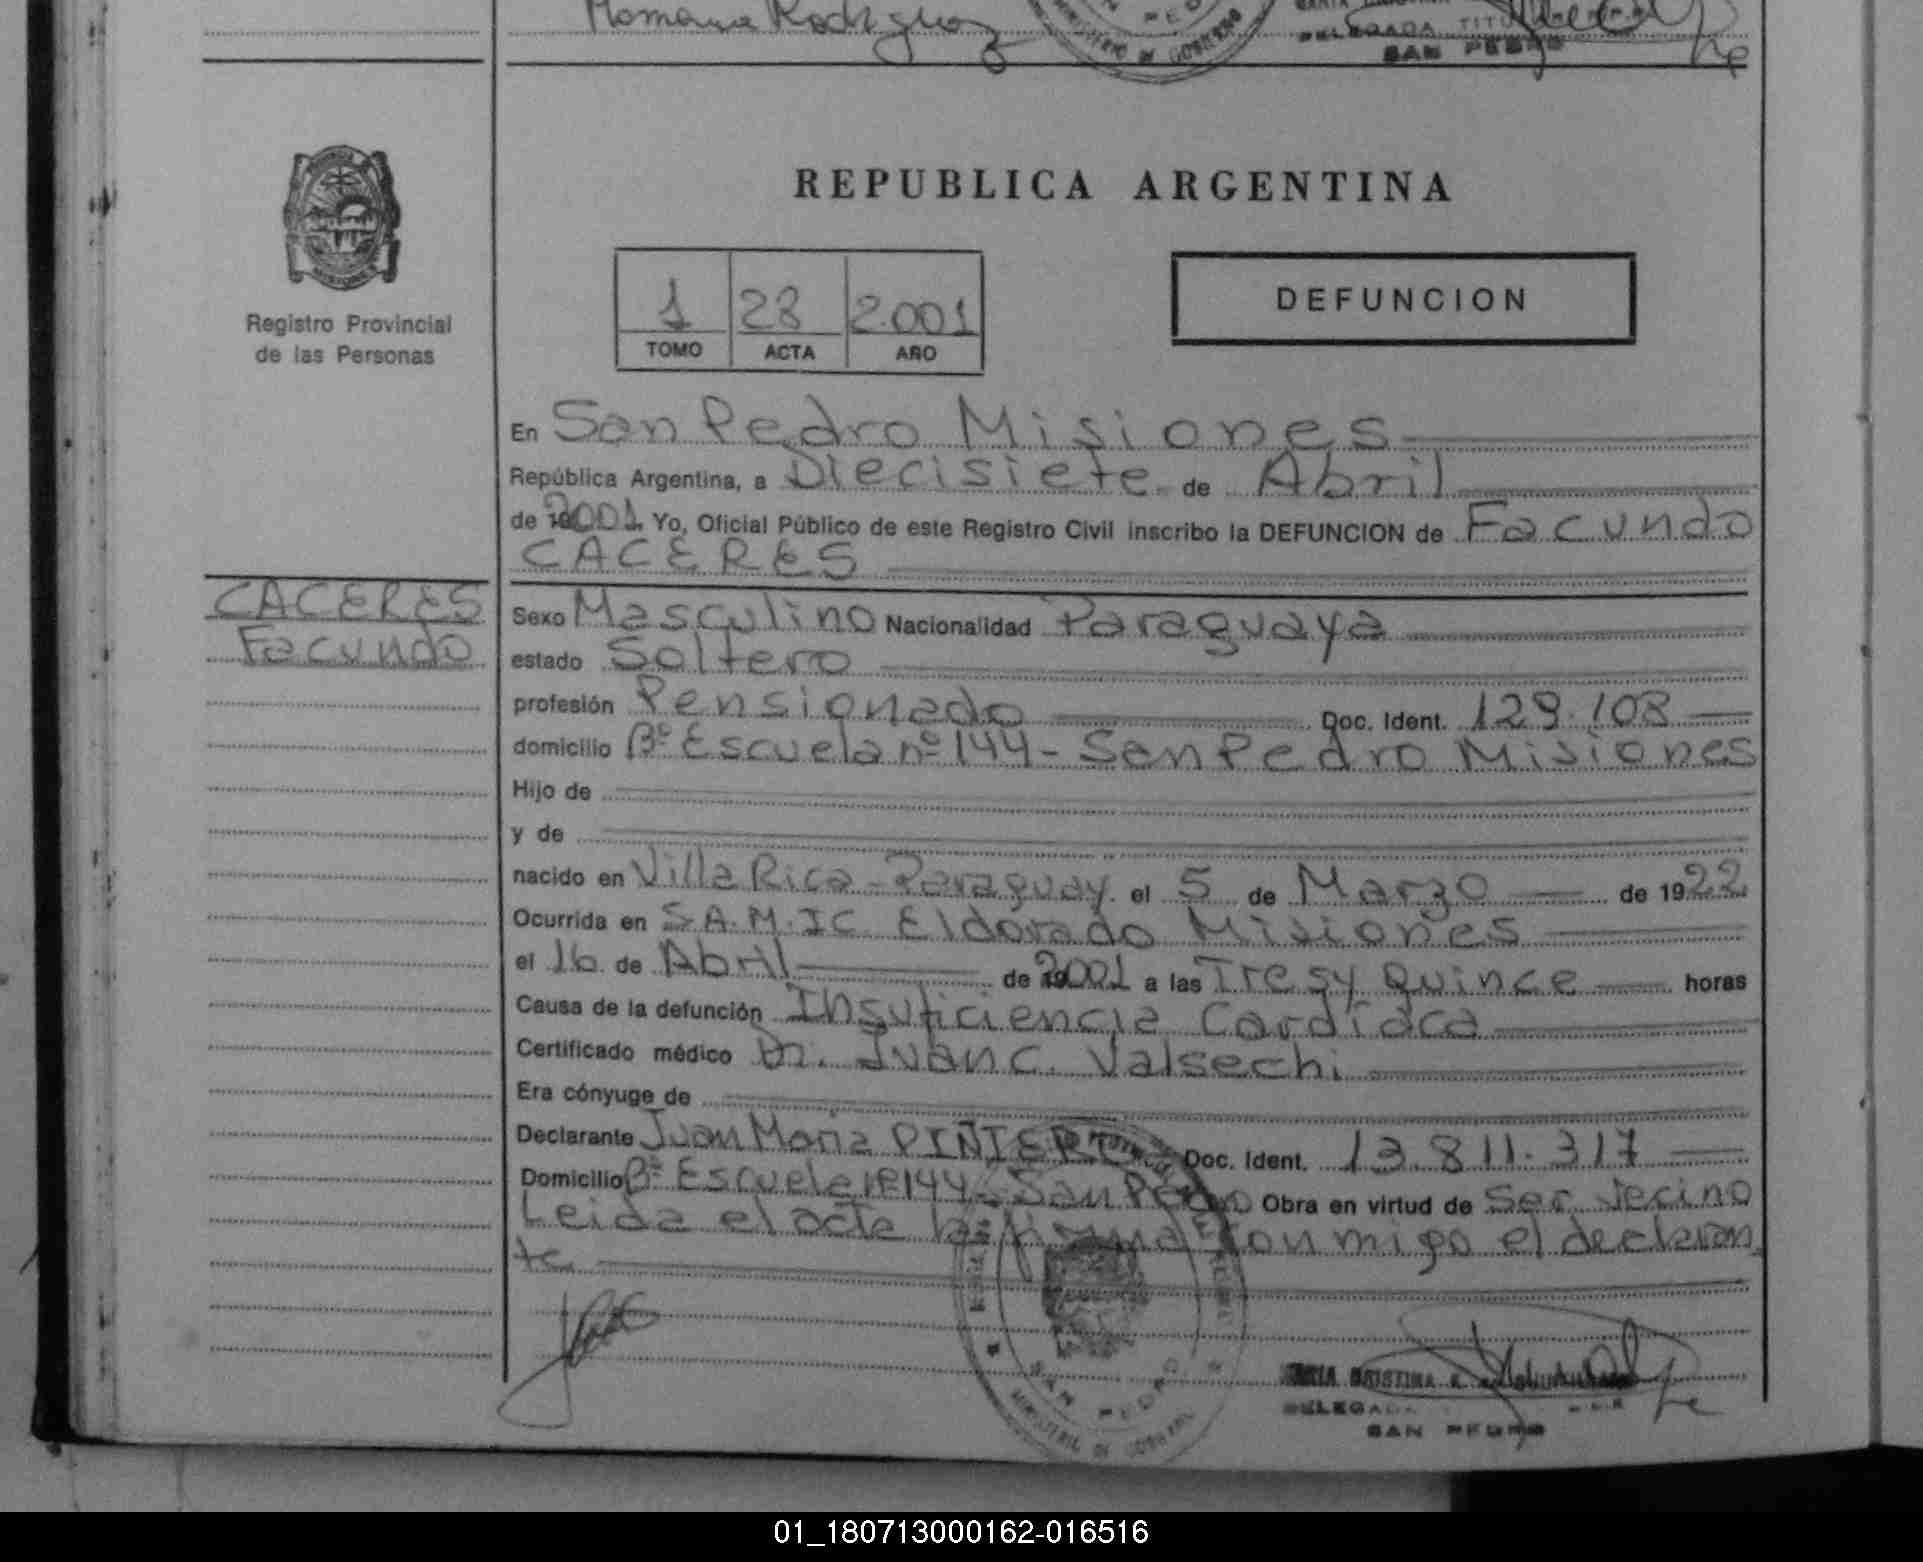 Rodriguez
MINISTERIO DE GOBIERNO
DELEGADA TITULAR
SAN PEDRO
REPUBLICA ARGENTINA
Registro Provincial
de las Personas
1 28 2.001
TOMO ACTA AÑO
DEFUNCION
En San Pedro Misiones
República Argentina, a Diecisiete de Abril
de 2001 Yo, Oficial Público de este Registro Civil inscribo la DEFUNCION de Facundo
CACERES
CACERES
Facundo
Sexo Masculino Nacionalidad Paraguaya
estado Soltero
profesión Pensionado Doc. Ident. 129.108
domicilio Bº Escuela nº 144 - San Pedro Misiones
Hijo de
y de
nacido en Villa Rica - Paraguay. el 5 de Marzo de 1922
Ocurrida en S.A.M.IC. Eldorado Misiones
el 16 de Abril de 2001 a las Tres y Quince horas
Causa de la defunción Insuficiencia Cardíaca
Certificado médico Dr. Juan C. Valsechi
Era cónyuge de
Declarante Juan Maria Doc. Ident. 13.811.317
Domicilio Bº Escuela nº 144 - San Pedro Obra en virtud de Ser Vecino
Leida el acta la firma con migo el declaran
te
SAN PEDRO
MINISTERIO DE GOBIERNO
CRISTINA
DELEGADA
SAN PEDRO
01_180713000162-016516